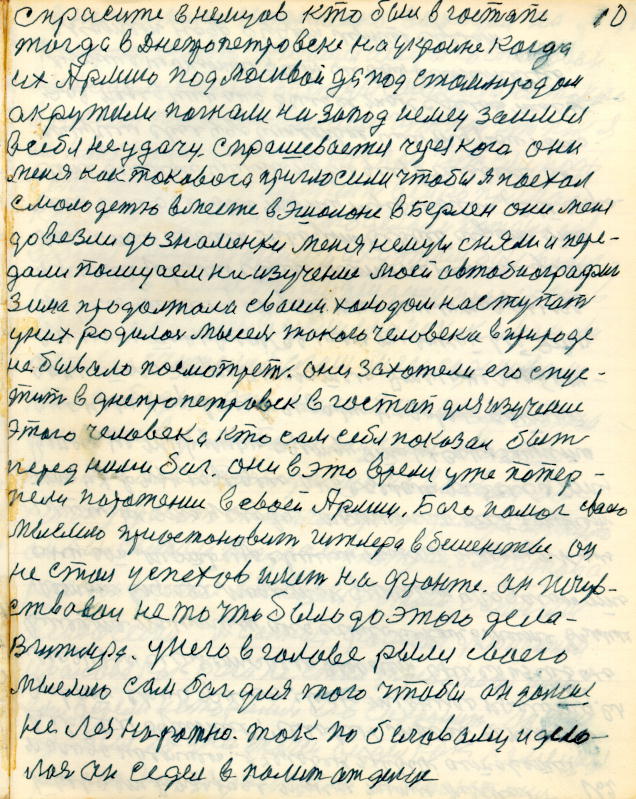 спрасите внемцов кто был в гостапе 10
тогда в днепропетровске на украине когда
их Армию под масквой да под сталинградом
акружили погнали на запод немец зашиб
в себя неудачу. спрашевается через кога они
меня как токовога приглосили чтобы я поехал
смолодетю вместе в эшолоне в Берлен они меня
довезли до знаменки меня немци сняли и пере-
дали полицаем на изучение моей автобиографии
Зима продолжала сваим холодом наступать
у них родилая мысея токого человека в природе
не бывало посмотреть. они захотели его спус-
тить в днепропетровск в гостап для изучение
этого человека кто сам себя показал быть
перед ними бог. они в это время уже потер-
пели поражении в своей Армии. Бого помог своею
мыслию приостоновить гитлера в бешенстве. он
не стал успехов имет на фронте. ан почув-
ствовал не то что было до этого дела-
в гитлере. у него в голове рыли своего
мыслию сам бог для того чтобы ан
не лея наротно. ток по беловали и дело-
лоя ан седел в политатделе